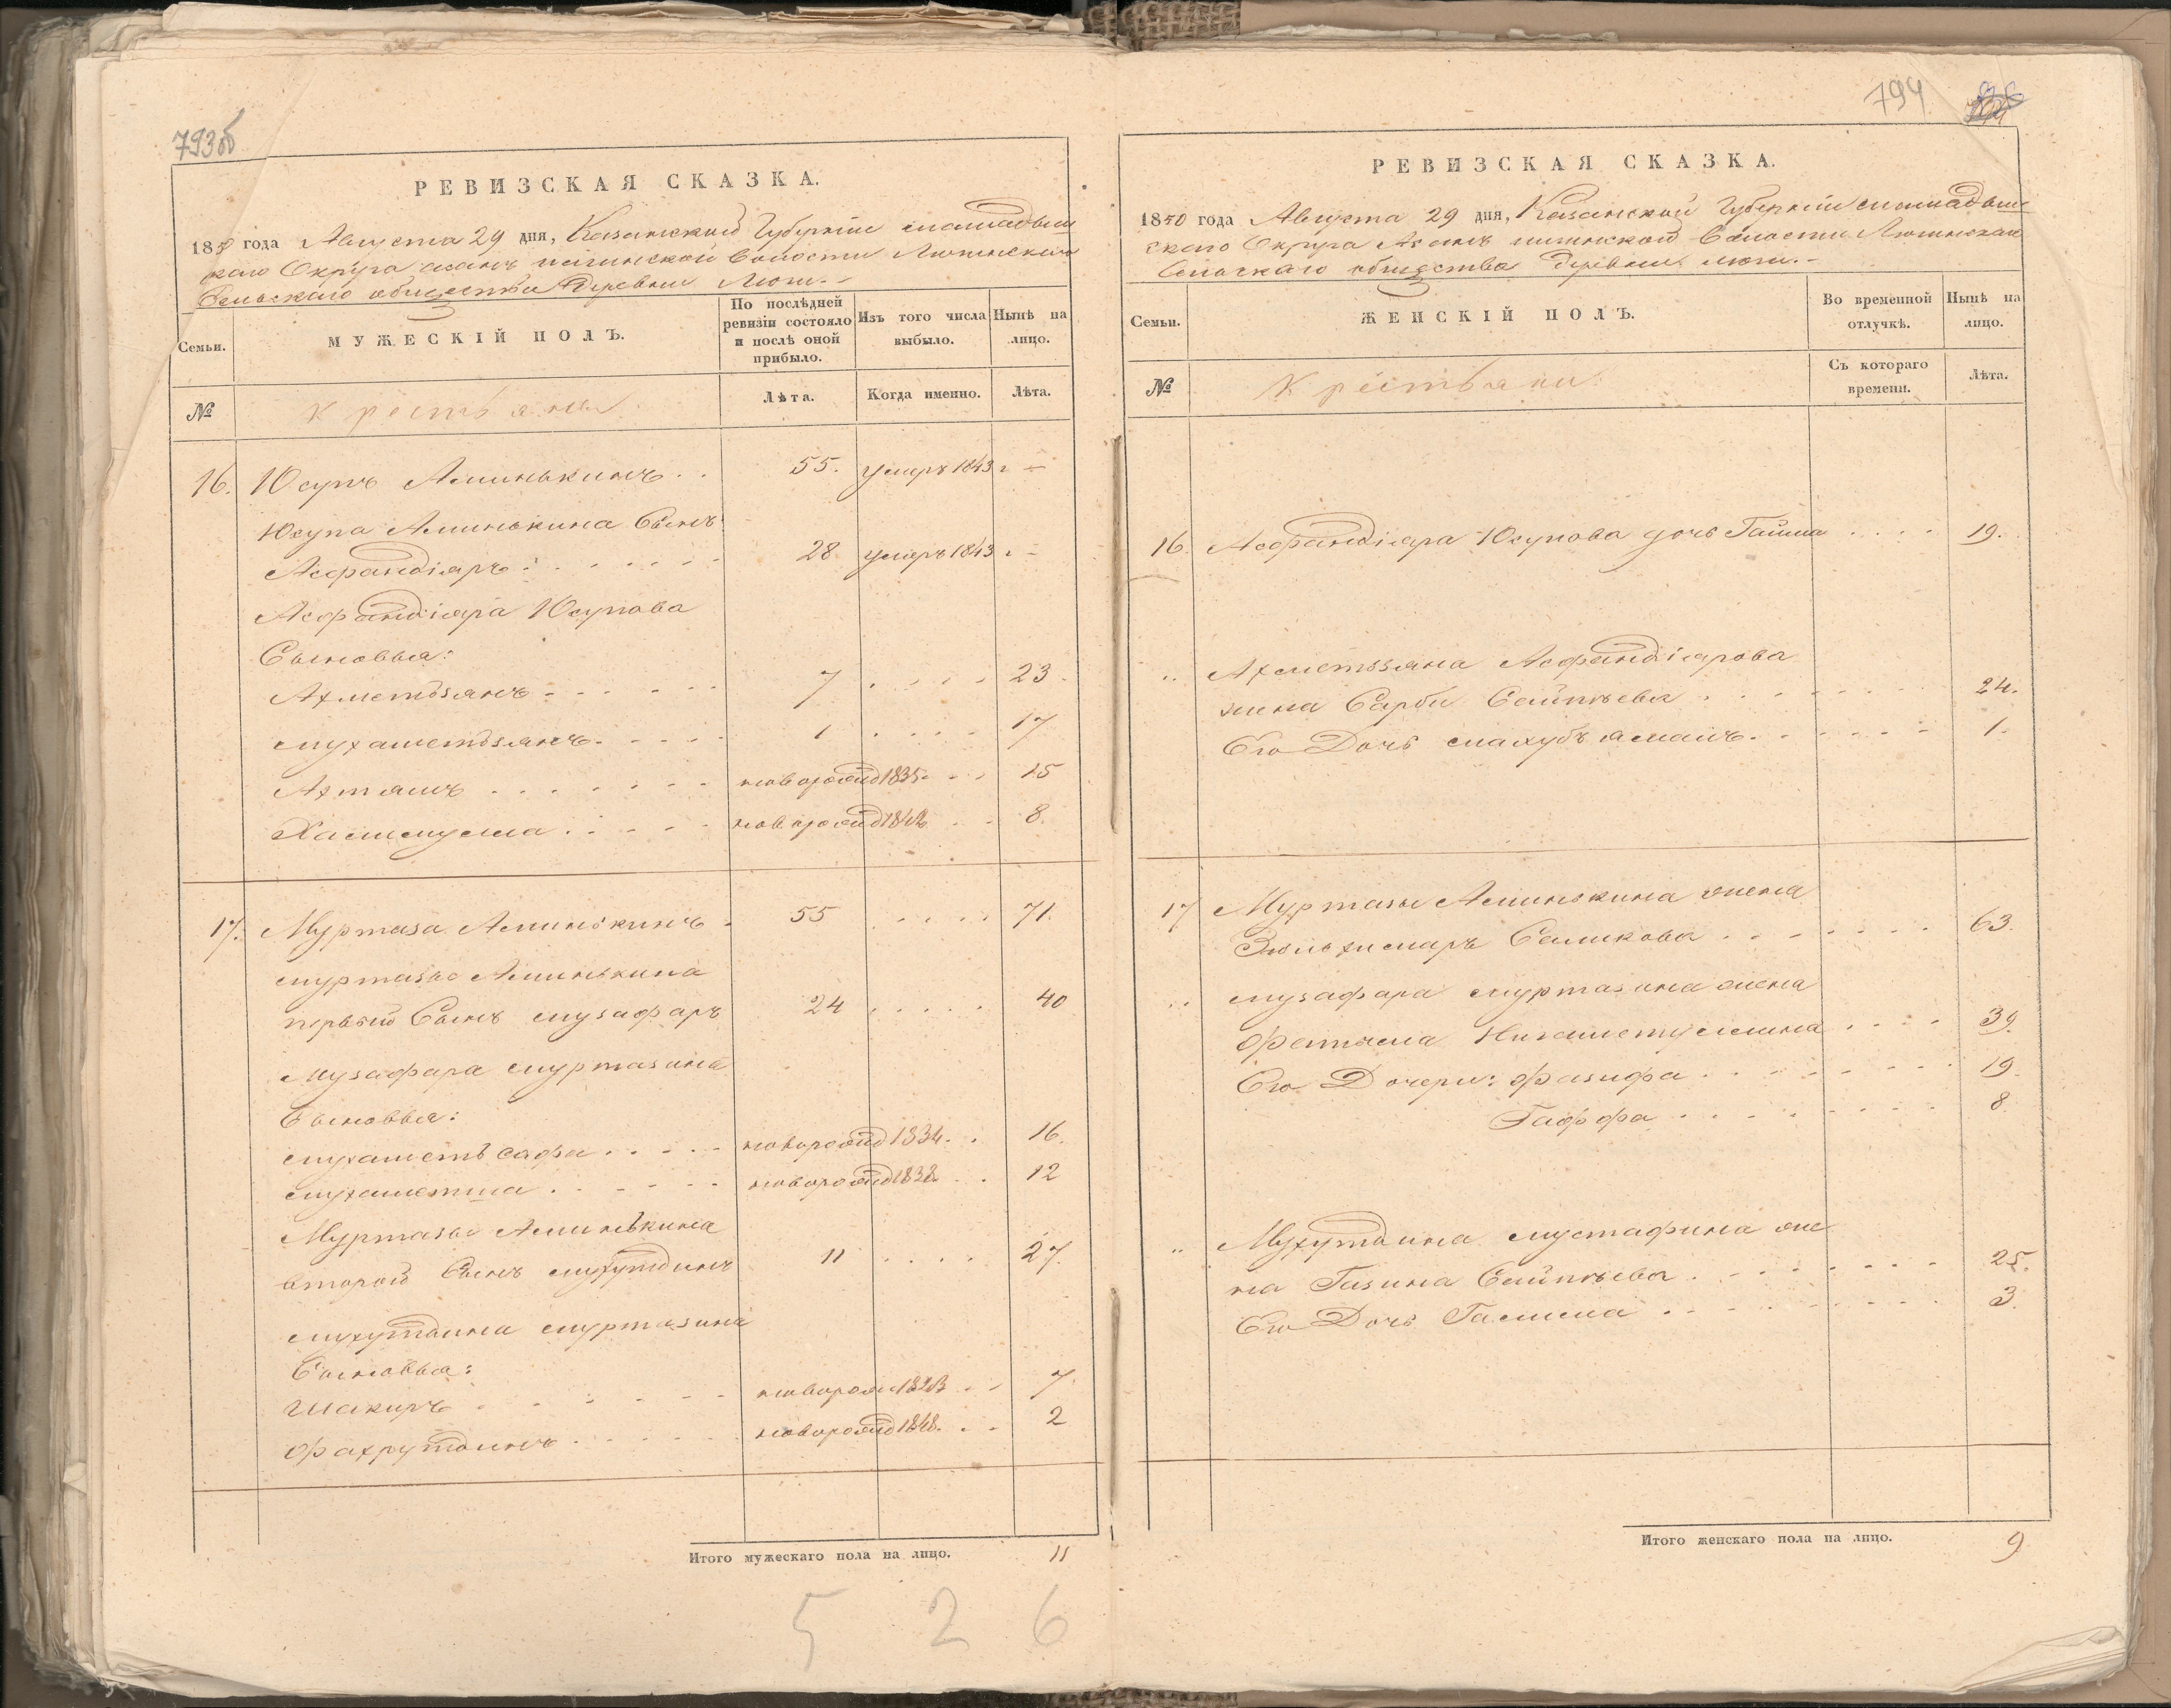 793об
РЕВИЗСКАЯ СКАЗКА.
1850 года Августа 29 дня, Казанской Губерніи мамадыш
скаго Округа асанъ илгинской волости Люгинскаго
Сельскаго общества Деревни Люги.
Семьи.
МУЖЕСКІЙ ПОЛЪ.
По послѣдней ревизіи состояло и послѣ оной прибыло.
Изъ того числа выбыло.
Нынѣ на лицо.
№
Крестьяни
Лѣта.
Когда именно.
Лѣта.
16. Юсупъ Аминькинъ . . 55. умеръ 1843 г —
Юсупа Аминькина Сынъ
Асфандіяръ: . . . . . . 28 умеръ 1843 г. —
Асфандіяра Юсупова
Сыновья:
Ахметзянъ . . . . . . 7 . . . . 23.
мухаметзянъ. . . . . 1 . . . . 17
Ахтямъ . . . . . . . новорожд 1835. . . 15
. . . . . новорожд 1842 . . 8.
17. Муртаза Аминькинъ . 55 . . . . 71.
муртазы Аминькина
первый Сынъ музафаръ 24 . . . . . 40
Музафара муртазина
Сыновья:
мухаметъ сафа . . . . . новорожд 1834. . 16.
мухаметша . . . . . . новорожд 1838 . . 12
Муртазы Аминькина
второй Сынъ мухутдинъ 11 . . . . 27.
мухутдина муртазина
Сыновья:
Шакиръ . . . . . новорож 1843 . . 7.
Фахрутдинъ . . . . . . новорожд 1848. . . 2
Итого мужескаго пола на лицо. 11
5 2 6
794
РЕВИЗСКАЯ СКАЗКА.
1850 года Августа 29 дня, Казанской Губерніи мамадыш
скаго Округа Асанъ илгинской волости Люгинскаго
Сельскаго общества Деревни Люги.
Семьи.
ЖЕНСКІЙ ПОЛЪ.
Во временной отлучкѣ.
Нынѣ на лицо.
№
Крестьяни
Съ котораго времени.
Лѣта.
16. Асфандіяра Юсупова дочь Гайша . . . . 19.
„ Ахметзяна Асфандіярова
жена Сарби Сейпѣева . . . . . . . 24.
Его Дочь . . . . . . 1.
17 Муртазы Аминькина жена
Саликова . . . . . . . 63.
„ музафара муртазина жена
Фатыма . . . . 39.
Его Дочери: Фазифа . . . . . . . . 19.
Гаффа . . . . . . . . 8.
„ Мухутдина мустафина же
на Гизина Сейпѣева . . . . . . . 25.
Его Дочь Галима . . . . . . . . 3.
Итого женскаго пола на лицо. 9